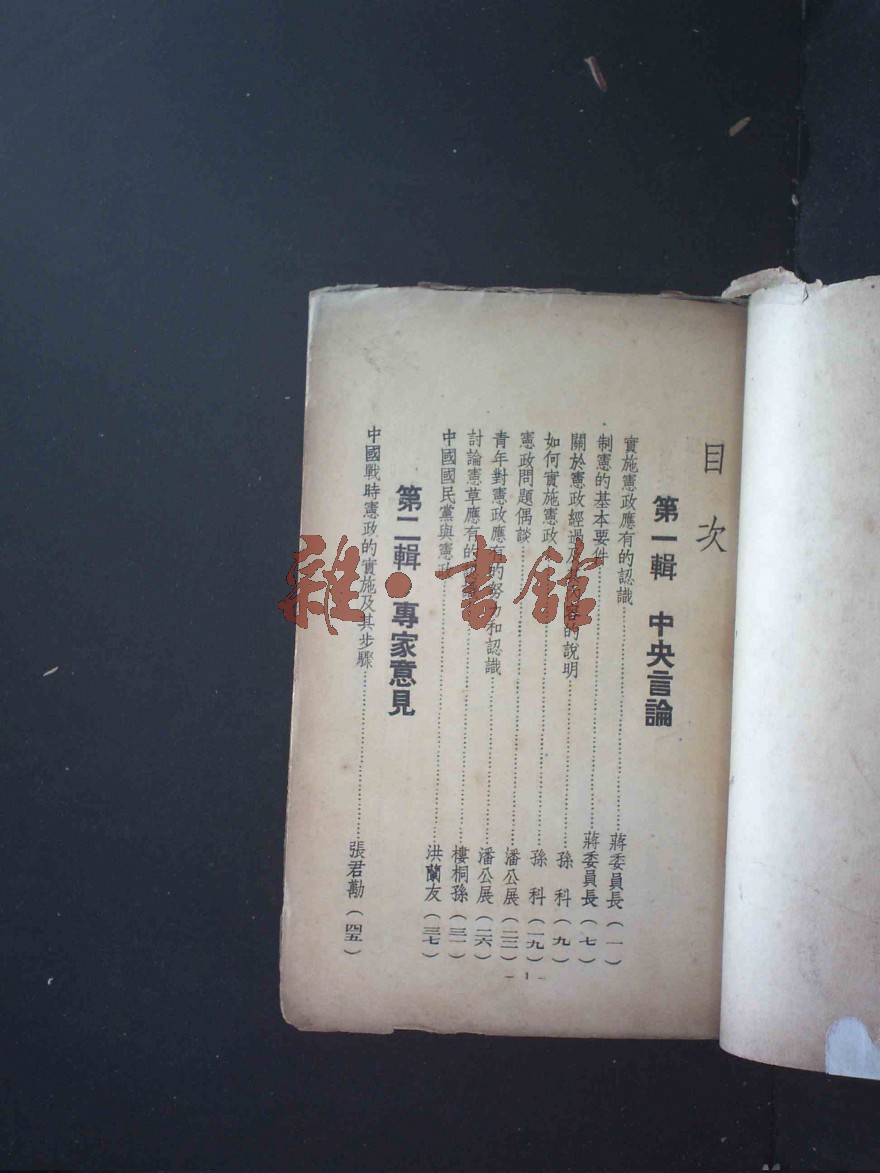 目次
第一輯　中央言論
實施憲政應有的認識……蔣委員長(一)
制憲的基本要件……蔣委員長(七)
關於憲政經過及內容的說明……孫　科(九)
如何實施憲政……孫　科(一九)
憲政問題偶談……潘公展(二二)
青年對憲政應有的努力和認識……潘公展(二六)
討論憲草應有的……樓桐孫(三一)
中國國民黨與憲政……洪蘭友(三七)
第二輯　專家意見
中國戰時憲政的實施及其步驟……張君勱(四五)
— 1 —
雜·書館